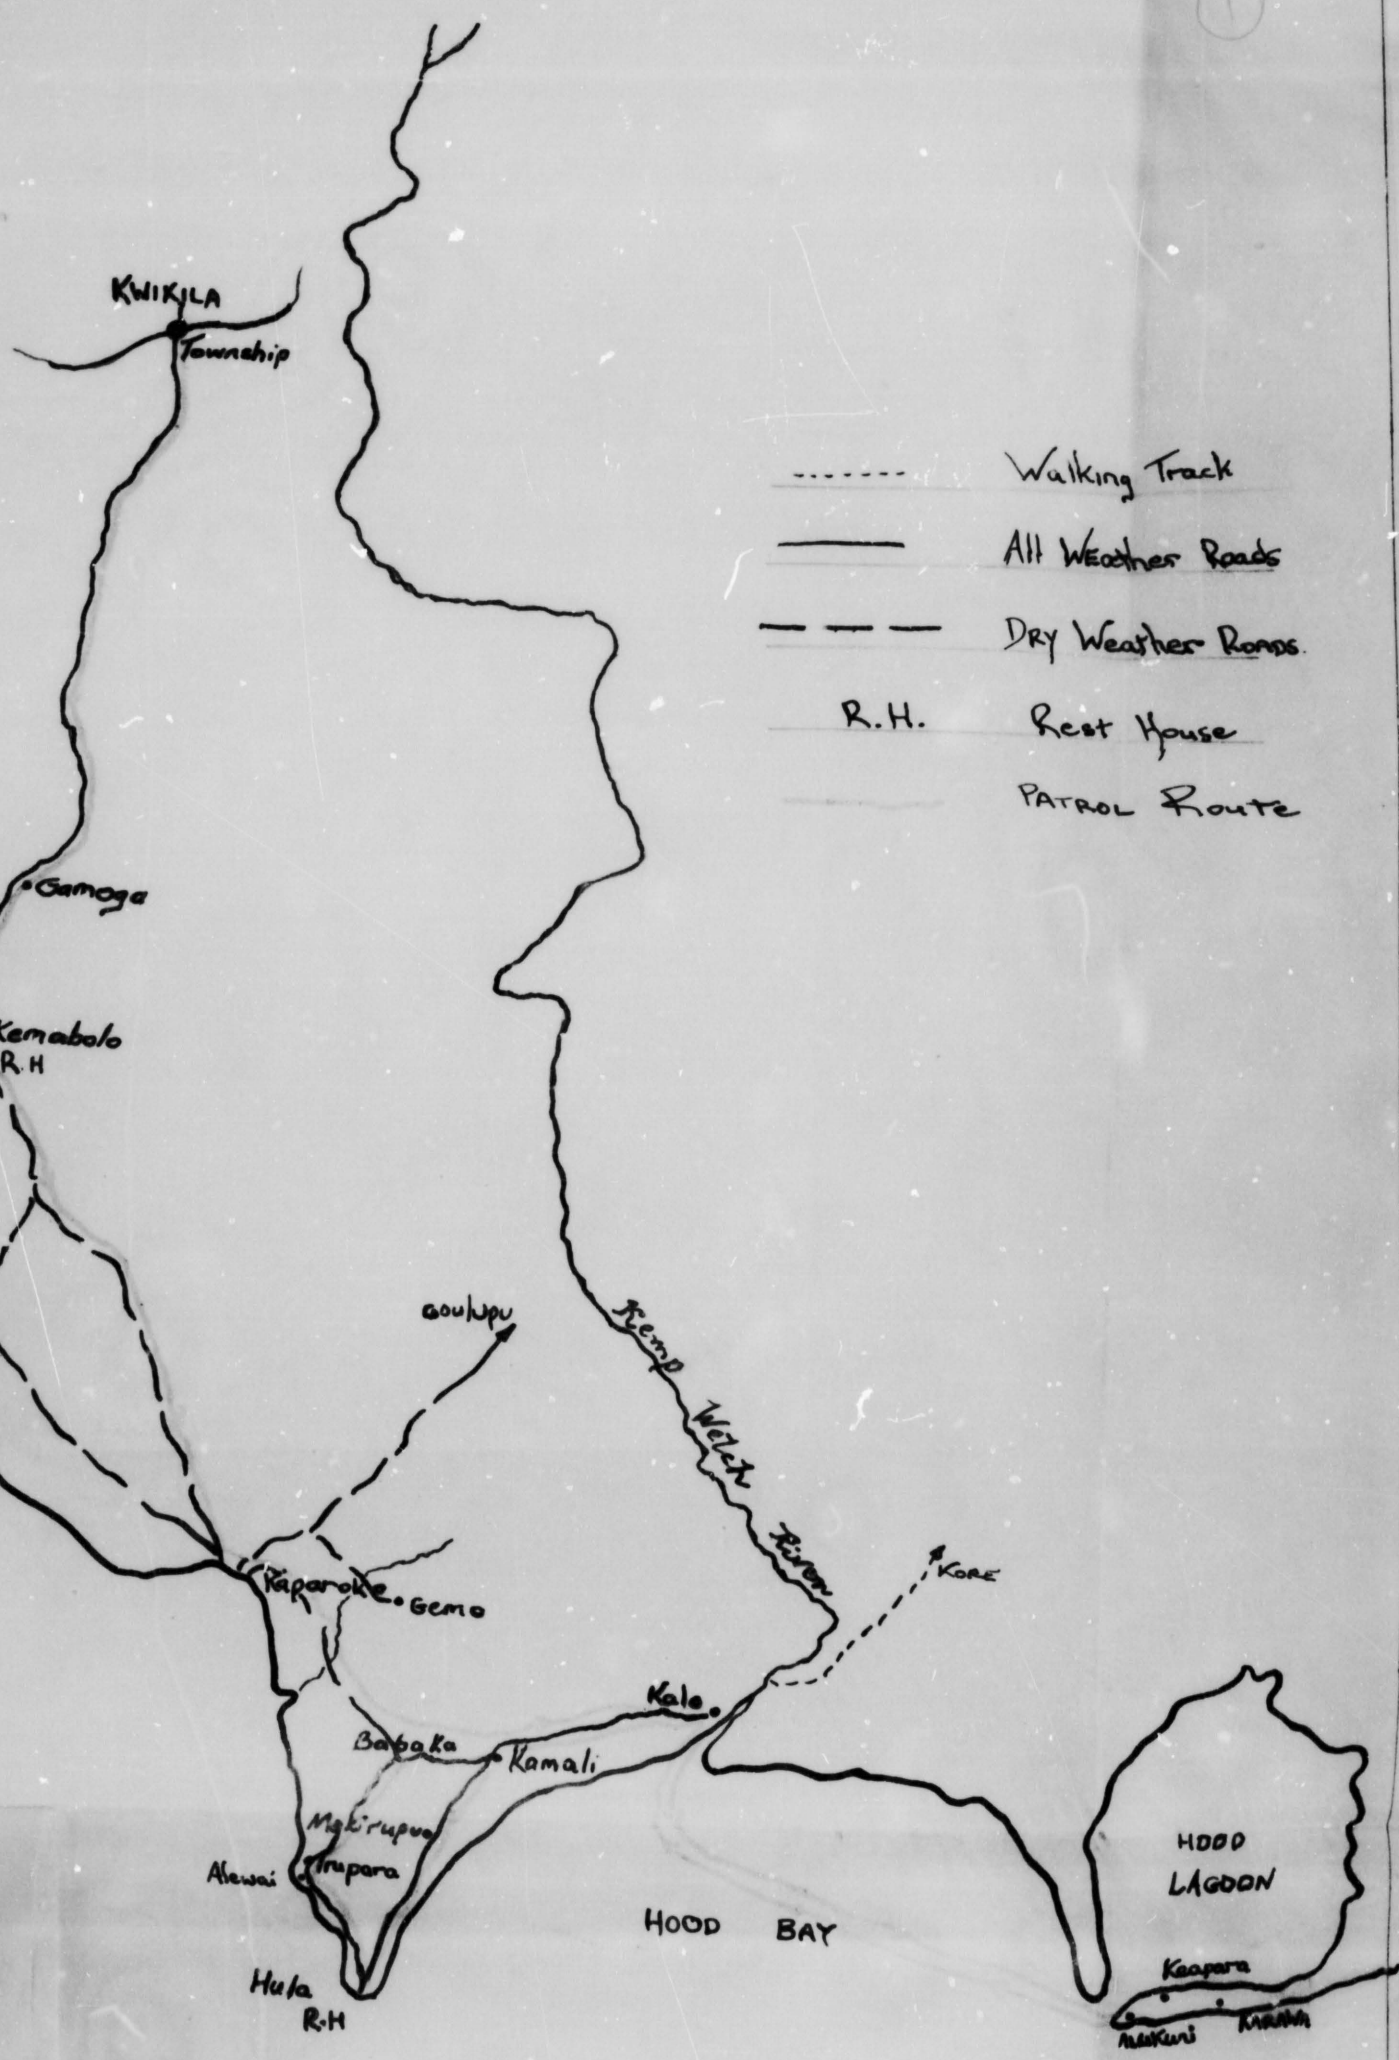 1
KWIKILA
Township
Walking Track
All WEather Roads
DRY Weather ROADS.
R.H. Rest House
PATROL Route
Gamoga
Kemabolo
R.H
Goulupu
Kemp Welch River
KORE
Paparoke
Gemo
Kalo
Babaka
Kamali
Makirupua
Irupara
Alewai
HOOD
LAGOON
HOOD BAY
Keapara
Hula
R.H
KARAWA